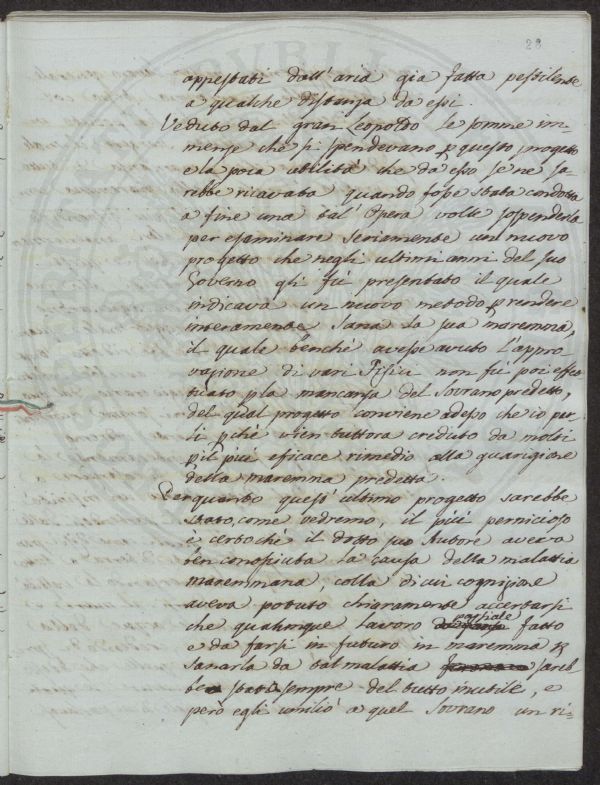 28
appestati dall'aria già fatta pestilente
a qualche distanza da essi.
Veduto dal gran Leopoldo le somme im-
mense che si spendevano p questo progetto
e la poca utilità che da esso se ne sa
rebbe ricavata quando fosse stata condotta
a fine una tal' Opera volle sospenderla
per esaminare seriamente un nuovo
progetto che negli ultimi anni del suo
Governo gli fù presentato il quale
indicava un nuovo metodo p rendere
interamente sana la sua maremma,
il quale benchè avesse avuto l'appro
vazione di vari Fisici non fù poi effet
tuato p la mancanza del Sovrano predetto,
del qual progetto conviene adesso che io par
li pchè vien tuttora creduto da molti
pil più eficace rimedio alla guarigione
della maremma predetta.
Per quanto quest'ultimo progetto sarebbe
stato, come vedremo, il più pernicioso
è certo chè il dotto suo Autore aveva
ben conosciuta la causa della malattia
maremmana, colla di cui cognizione
aveva potuto chiaramente accertarsi
che qualunque lavoro parziale fatto
e da farsi in futuro in maremma p
sanarla da tal malattia sareb
be stato sempre del tutto inutile, e
però egli umiliò a quel Sovrano un ri=